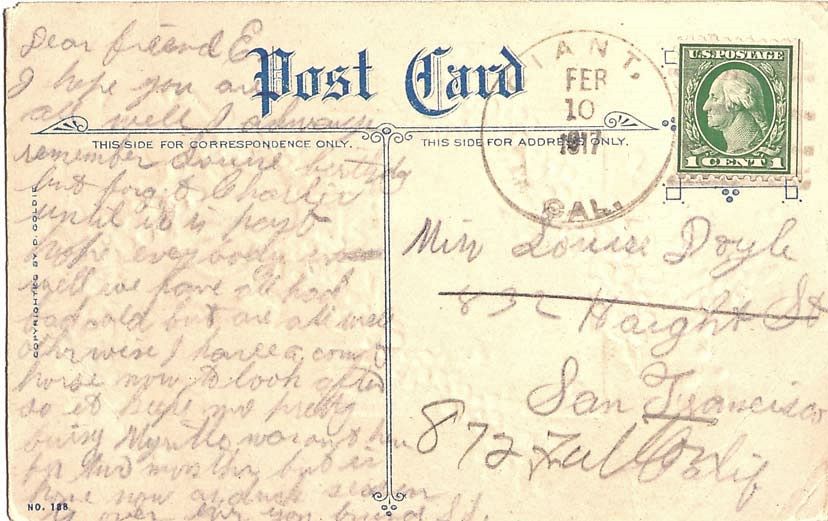 Dear friend E
I hope you are
all well I always
remember Louise
but forgot Charlie
until it is past
hope everybody is
well we have all had
bad cold but are all well
otherwise I have a
horse now to look after
so it keeps me pretty
busy Myrtle
for two months but is
home now
is over
Post Card
THIS SIDE FOR CORRESPONDENCE ONLY.
THIS SIDE FOR ADDRESS ONLY.
COPYRIGHTED BY P. GOLDIE
NO. 188
GIANT,
FEB
10
1917
CAL.
U.S. POSTAGE
1 CENT 1
Miss Louise Doyle
832 Haight St
San Francisco
872 Fulton Calif